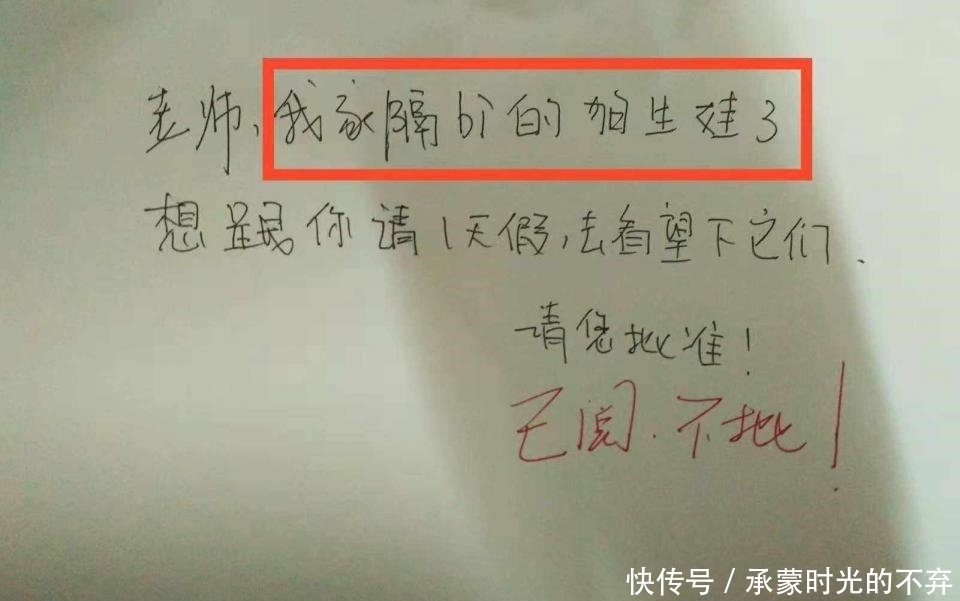 老师、我家隔bì的狗生娃了
想跟你请1天假,去看望下它们.
请您批准!
已阅.不批!
快传号 / 承蒙时光的不弃